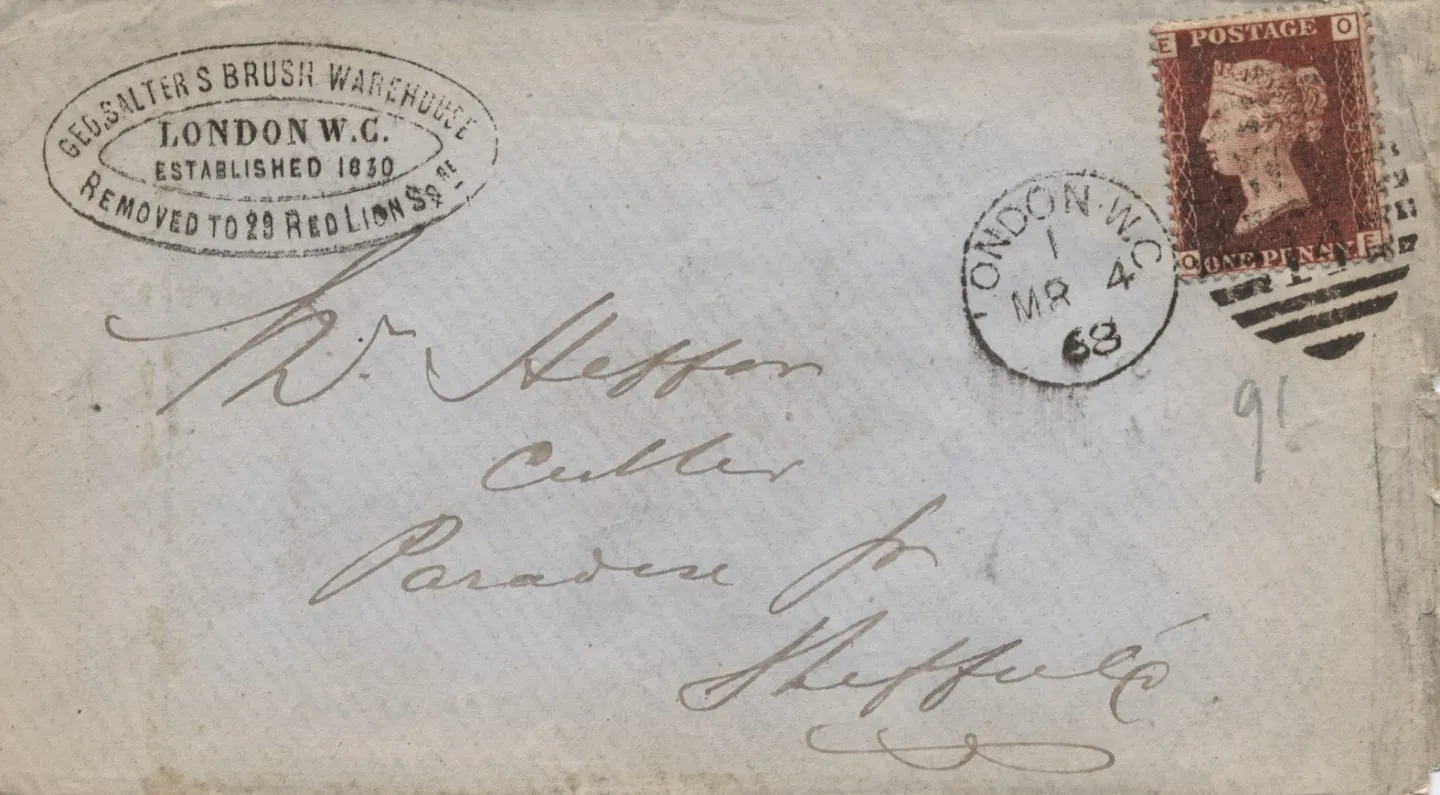 GEO. SALTER S BRUSH WAREHOUSE
LONDON W.C.
ESTABLISHED 1830
REMOVED TO 29 RED LION SQRE
E POSTAGE O
O ONE PENNY E
LONDON·W.C
1
MR 4
68
91
Mr. Heffor
Cutler
Paradise Sr
Sheffield